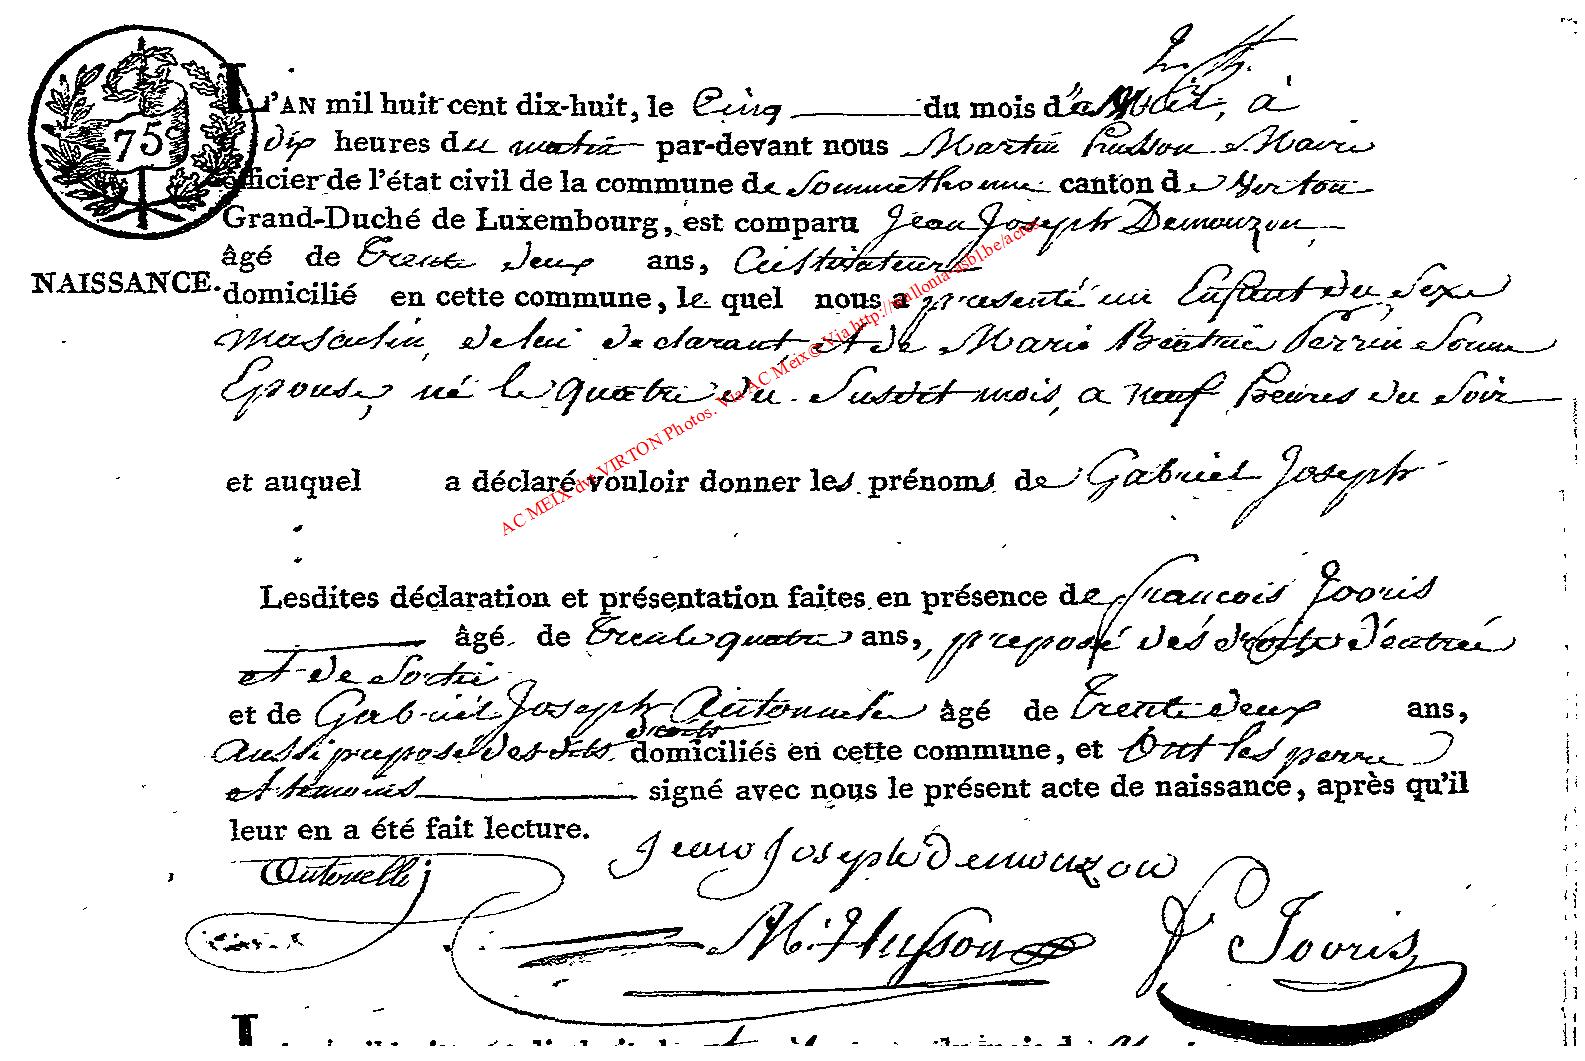 75
L'AN mil huit cent dix-huit, le Cinq du mois d'août, à
dix heures du matin par-devant nous Martin Husson Maire
officier de l'état civil de la commune de Sommethonne canton de Virton
Grand-Duché de Luxembourg, est comparu Jean Joseph Demouzon
âgé de trente deux ans, Cultivateur
NAISSANCE.
domicilié en cette commune, le quel nous a présenté un Enfant du Sexe
Masculin, de lui declarant et de Marie Beatrice Perrin Sonne
Epouse, né le quatre du susdit mois, a neuf heures du soir
et auquel a déclaré vouloir donner les prénoms de Gabriel Joseph
Lesdites déclaration et présentation faites en présence de François Jooris
âgé de trente quatre ans, preposé dés droits d'entrée
et de Sortie
et de Gabriel Joseph Antonuelle âgé de trente deux ans,
aussi preposé des dits droits domiciliés en cette commune, et Ont les perre
et temoins signé avec nous le présent acte de naissance, après qu'il
leur en a été fait lecture.
Jean Joseph Demouzon
Antonelle
M. Husson
F Jooris
AC MEIX dvt VIRTON Photos. Via AC Meix© Via http://wallonia-asbl.be/actes